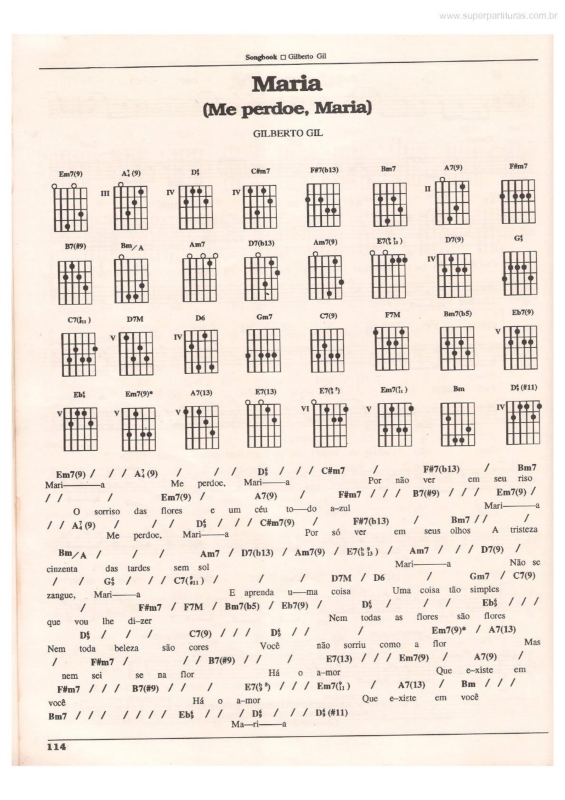 www.superpartituras.com.br
Songbook □ Gilberto Gil
Maria
(Me perdoe, Maria)
GILBERTO GIL
Em7(9) A⁷₄(9) D⁶₉ C#m7 F#7(b13) Bm7 A7(9) F#m7
III IV IV II
B7(#9) Bm/A Am7 D7(b13) Am7(9) D7(9) G⁶₉
IV
D7M D6 Gm7 C7(9) F7M Bm7(b5) Eb7(9)
V IV V
Eb⁶₉ Em7(9)* A7(13) E7(13) Bm D⁶₉(#11)
V V V VI V IV
Em7(9) / / / A⁷₄(9) / / / D⁶₉ / / / C#m7 / F#7(b13) / Bm7
Mari——a Me perdoe, Mari——a Por não ver em seu riso
/ / / Em7(9) / A7(9) / F#m7 / / / B7(#9) / / / Em7(9) /
O sorriso das flores e um céu to—do a-zul Mari——a
/ / A⁷₄(9) / / / D⁶₉ / / / C#m7(9) / F#7(b13) / Bm7 / / /
Me perdoe, Mari——a Por só ver em seus olhos A tristeza
Bm/A / / / Am7 / D7(b13) / Am7(9) / / Am7 / / / D7(9) /
cinzenta das tardes sem sol Mari——a Não se
/ / G⁶₉ / / / / / / D7M / D6 / Gm7 / C7(9)
zangue, Mari——a E aprenda u—ma coisa Uma coisa tão simples
/ F#m7 / F7M / Bm7(b5) / Eb7(9) / D⁶₉ / / / Eb⁶₉ / / /
que vou lhe di-zer Nem todas as flores são flores
D⁶₉ / / / C7(9) / / / D⁶₉ / / / Em7(9)* / A7(13)
Nem toda beleza são cores Você não sorriu como a flor Mas
/ F#m7 / / / B7(#9) / / / E7(13) / / / Em7(9) / A7(9) /
nem sei se na flor Há o a-mor Que e-xiste em
F#m7 / / / B7(#9) / / / / / / / / A7(13) / Bm / / /
você Há o a-mor Que e-xiste em você
Bm7 / / / / / / / Eb⁶₉ / / / D⁶₉ / / / D⁶₉(#11)
Ma—ri——a
114